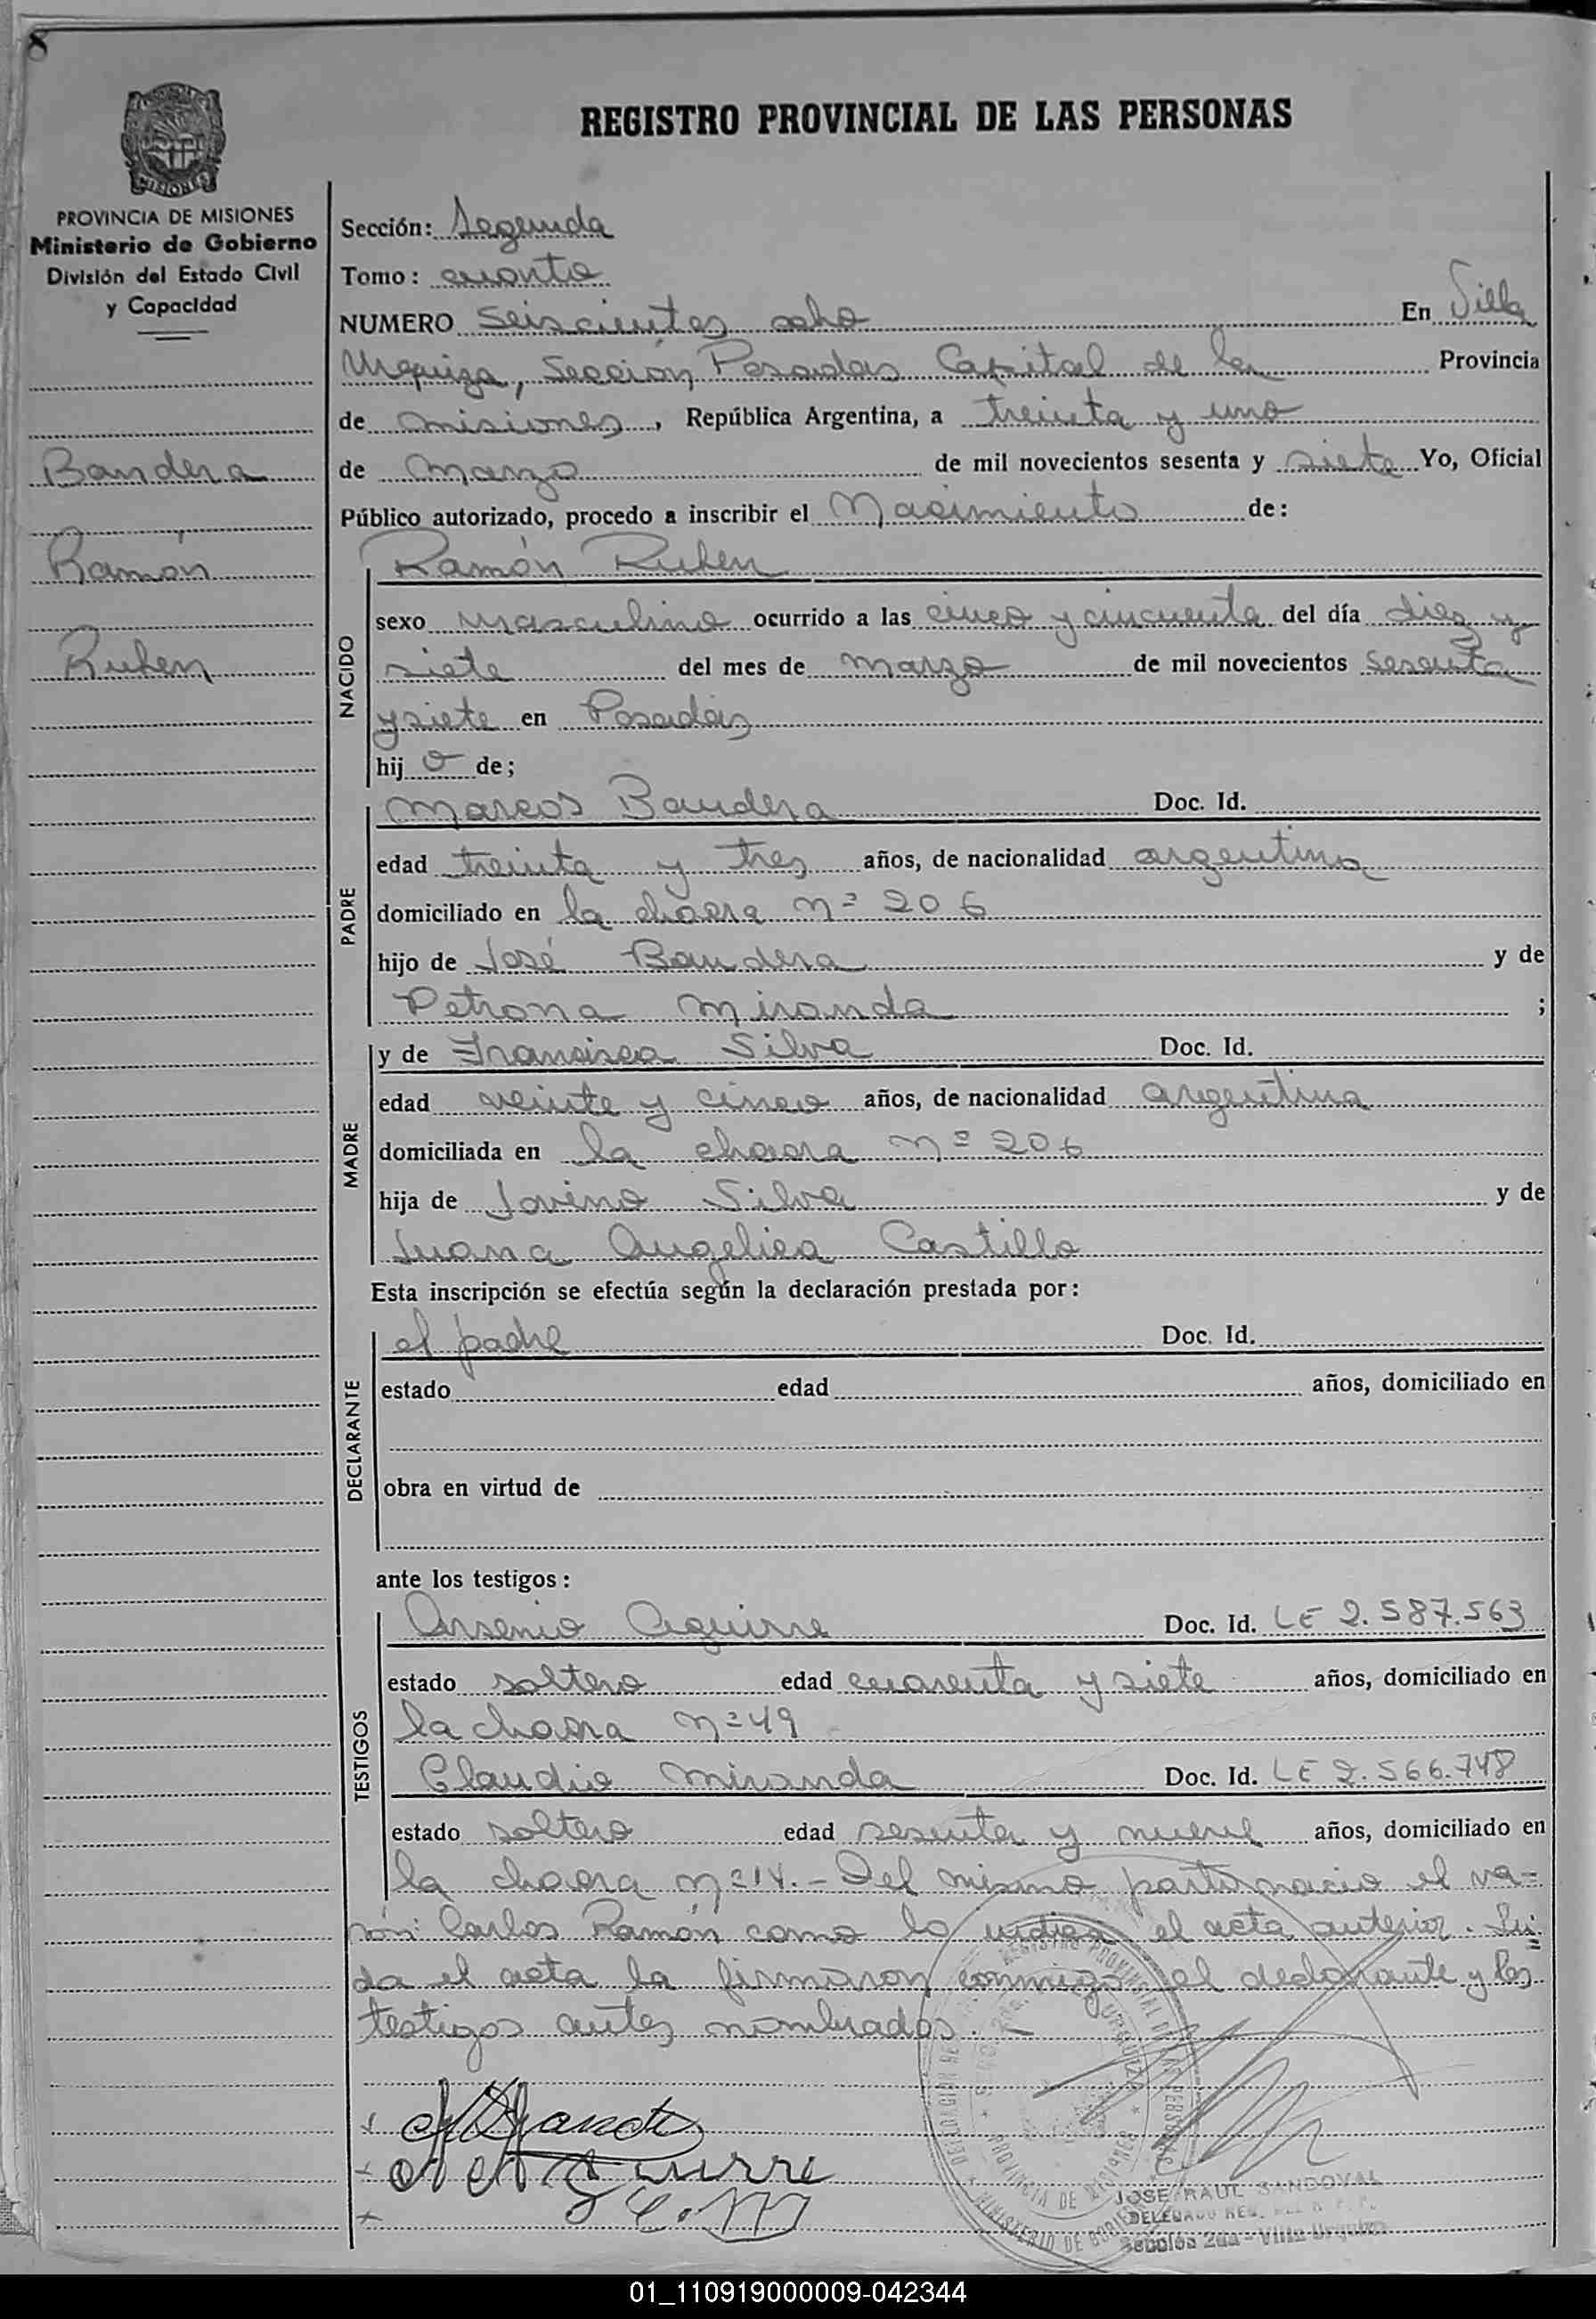 8
REGISTRO PROVINCIAL DE LAS PERSONAS
PROVINCIA DE MISIONES
Ministerio de Gobierno
División del Estado Civil
y Capacidad
Bandera
Ramón
Ruben
Sección: Segunda
Tomo: cuarto
NUMERO Seiscientos ocho En Villa
Urquiza, Sección Posadas Capital de la Provincia
de misiones, República Argentina, a treinta y uno
de marzo de mil novecientos sesenta y siete Yo, Oficial
Público autorizado, procedo a inscribir el Nacimiento de:
NACIDO
Ramón Ruben
sexo masculino ocurrido a las cinco y cincuenta del día diez y
siete del mes de marzo de mil novecientos sesenta
y siete en Posadas
hij o de;
PADRE
Marcos Bandera Doc. Id.
edad treinta y tres años, de nacionalidad argentino
domiciliado en la chacra nº 206
hijo de José Bandera y de
Petrona Miranda ;
MADRE
y de Francisca Silva Doc. Id.
edad veinte y cinco años, de nacionalidad argentina
domiciliada en la chacra nº 206
hija de Jovino Silva y de
Juana Angelica Castillo
Esta inscripción se efectúa según la declaración prestada por:
DECLARANTE
el padre Doc. Id.
estado edad años, domiciliado en
obra en virtud de
ante los testigos:
TESTIGOS
Arsenio Aguirre Doc. Id. LE 2.587.563
estado soltero edad cuarenta y siete años, domiciliado en
la chacra nº 49
Claudio Miranda Doc. Id. LE 2.566.748
estado soltero edad sesenta y nueve años, domiciliado en
la chacra nº 14.- Del mismo parto nacio el va-
rón: Carlos Ramón como lo indica el acta anterior. Lei-
da el acta la firmaron conmigo el declarante y los
testigos antes nombrados.-
JOSE RAUL SANDOVAL
DELEGADO REG.
Sección 2da - Villa Urquiza
REGISTRO PROVINCIAL DE LAS PERSONAS
PROVINCIA DE MISIONES
MINISTERIO DE GOBIERNO
01_110919000009-042344